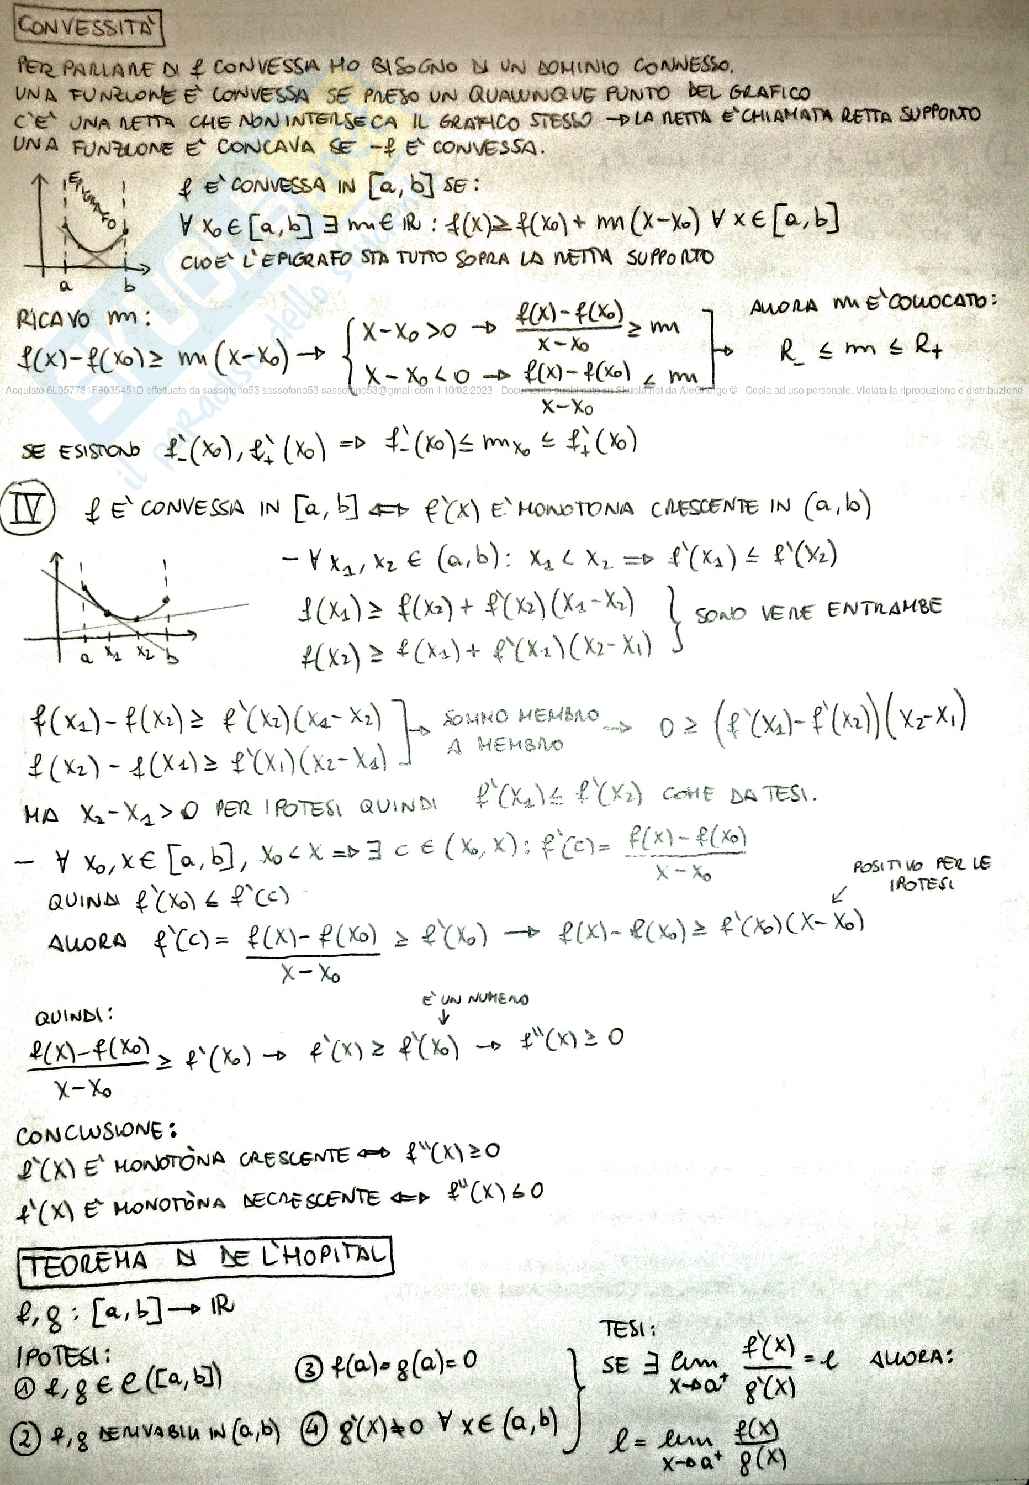 CONVESSITÀ
PER PARLARE DI f CONVESSA HO BISOGNO DI UN DOMINIO CONNESSO.
UNA FUNZIONE E' CONVESSA SE PRESO UN QUALUNQUE PUNTO DEL GRAFICO
C'E' UNA RETTA CHE NON INTERSECA IL GRAFICO STESSO → LA RETTA E' CHIAMATA RETTA SUPPORTO
UNA FUNZIONE E' CONCAVA SE -f E' CONVESSA.
EPIGRAFO
a b
f E' CONVESSA IN [a,b] SE:
∀ x₀ ∈ [a,b] ∃ m ∈ ℝ : f(x) ≥ f(x₀) + m (x-x₀) ∀ x ∈ [a,b]
CIOE' L'EPIGRAFO STA TUTTO SOPRA LA RETTA SUPPORTO
RICAVO m:
f(x)-f(x₀) ≥ m(x-x₀) → { x-x₀>0 → (f(x)-f(x₀))/(x-x₀) ≥ m
x-x₀<0 → (f(x)-f(x₀))/(x-x₀) ≤ m
→ ALLORA m E' COLLOCATO:
R₋ ≤ m ≤ R₊
SE ESISTONO f'₋(x₀), f'₊(x₀) ⇒ f'₋(x₀) ≤ m_x₀ ≤ f'₊(x₀)
IV f E' CONVESSA IN [a,b] ⇔ f'(x) E' MONOTONA CRESCENTE IN (a,b)
a x₁ x₂ b
- ∀ x₁, x₂ ∈ (a,b): x₁ < x₂ ⇒ f'(x₁) ≤ f'(x₂)
f(x₁) ≥ f(x₂) + f'(x₂)(x₁-x₂)
f(x₂) ≥ f(x₁) + f'(x₁)(x₂-x₁)
} SONO VERE ENTRAMBE
f(x₁)-f(x₂) ≥ f'(x₂)(x₁-x₂)
f(x₂)-f(x₁) ≥ f'(x₁)(x₂-x₁)
→ SOMMO MEMBRO
A MEMBRO
→ 0 ≥ (f'(x₁)-f'(x₂))(x₂-x₁)
MA x₂-x₁>0 PER IPOTESI QUINDI f'(x₁) ≤ f'(x₂) COME DA TESI.
- ∀ x₀, x ∈ [a,b], x₀<x ⇒ ∃ c ∈ (x₀,x): f'(c) = (f(x)-f(x₀))/(x-x₀)
QUINDI f'(x₀) ≤ f'(c)
POSITIVO PER LE
IPOTESI
ALLORA f'(c) = (f(x)-f(x₀))/(x-x₀) ≥ f'(x₀) → f(x)-f(x₀) ≥ f'(x₀)(x-x₀)
QUINDI:
E' UN NUMERO
(f(x)-f(x₀))/(x-x₀) ≥ f'(x₀) → f'(x) ≥ f'(x₀) → f''(x) ≥ 0
CONCLUSIONE:
f'(x) E' MONOTÒNA CRESCENTE ⇔ f''(x) ≥ 0
f'(x) E' MONOTÒNA DECRESCENTE ⇔ f''(x) ≤ 0
TEOREMA DI DE L'HOPITAL
f,g : [a,b] → ℝ
IPOTESI:
① f,g ∈ C([a,b])
② f,g DERIVABILI IN (a,b)
③ f(a)=g(a)=0
④ g'(x)≠0 ∀ x ∈ (a,b)
TESI:
SE ∃ lim x→a⁺ f'(x)/g'(x) = l ALLORA:
l = lim x→a⁺ f(x)/g(x)